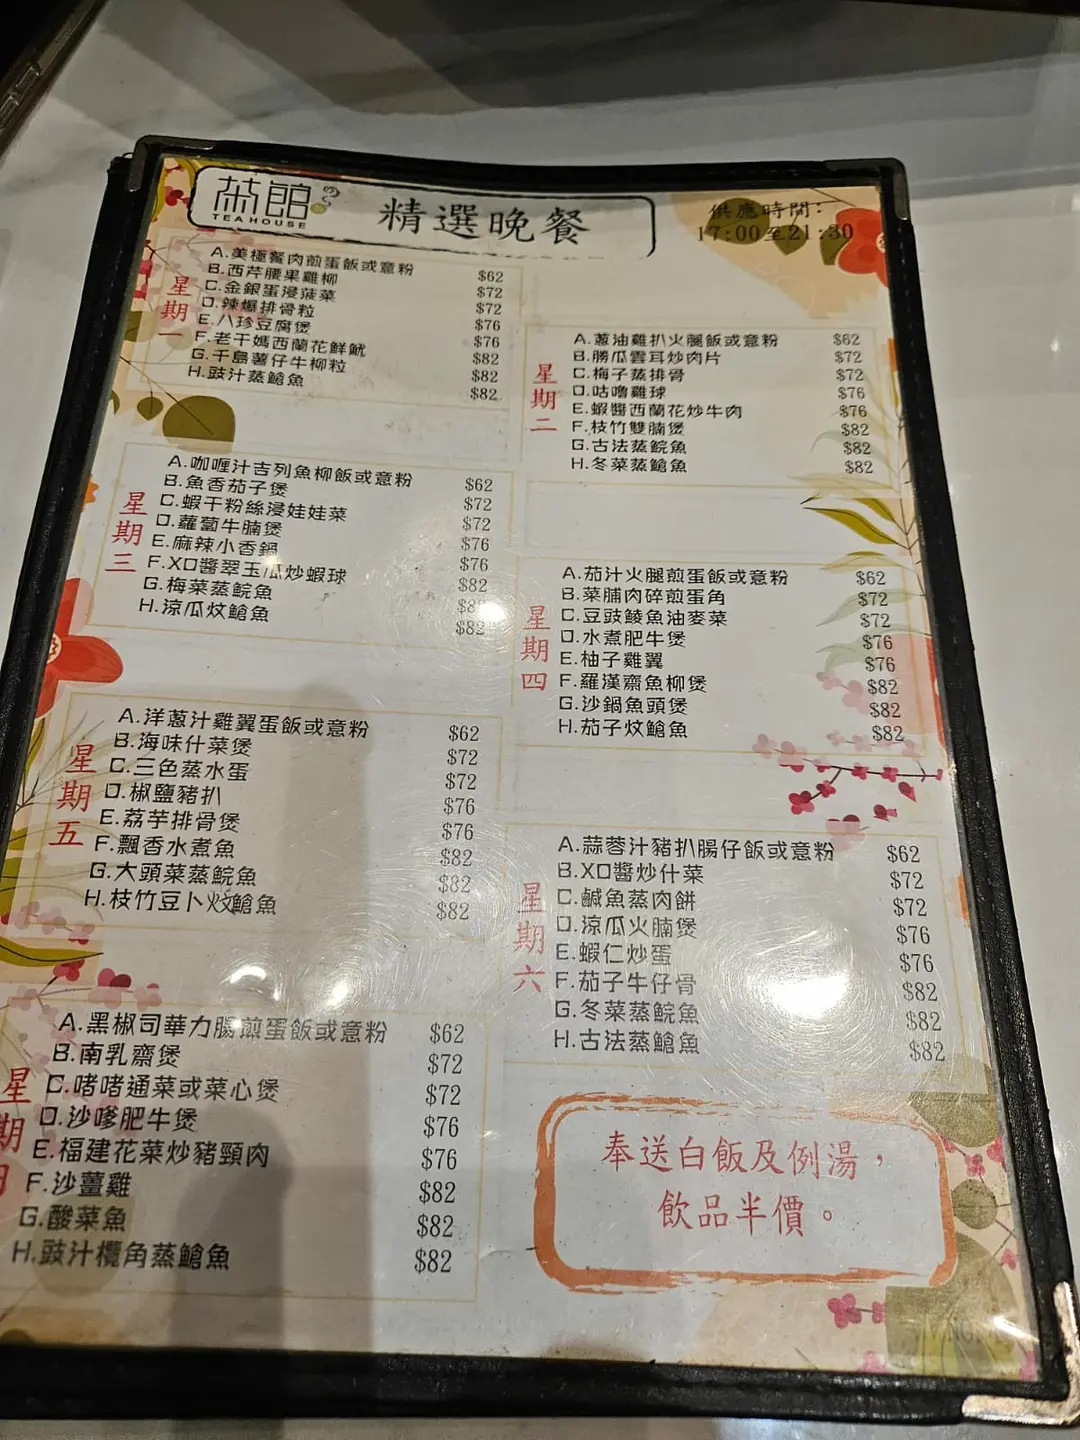 茶館
TEA HOUSE
精選晚餐
供應時間:
17:00至21:30
星期一
A.美極餐肉煎蛋飯或意粉 $62
B.西芹腰果雞柳 $72
C.金銀蛋浸菠菜 $72
D.辣爆排骨粒 $76
E.八珍豆腐煲 $76
F.老干媽西蘭花鮮魷 $82
G.千島薯仔牛柳粒 $82
H.豉汁蒸鯧魚 $82
星期二
A.蔥油雞扒火腿飯或意粉 $62
B.勝瓜雲耳炒肉片 $72
C.梅子蒸排骨 $72
D.咕嚕雞球 $76
E.蝦醬西蘭花炒牛肉 $76
F.枝竹雙腩煲 $82
G.古法蒸鯇魚 $82
H.冬菜蒸鯧魚 $82
星期三
A.咖喱汁吉列魚柳飯或意粉 $62
B.魚香茄子煲 $72
C.蝦干粉絲浸娃娃菜 $72
D.蘿蔔牛腩煲 $76
E.麻辣小香鍋 $76
F.XO醬翠玉瓜炒蝦球 $82
G.梅菜蒸鯇魚 $82
H.涼瓜炆鯧魚 $82
星期四
A.茄汁火腿煎蛋飯或意粉 $62
B.菜脯肉碎煎蛋角 $72
C.豆豉鯪魚油麥菜 $72
D.水煮肥牛煲 $76
E.柚子雞翼 $76
F.羅漢齋魚柳煲 $82
G.沙鍋魚頭煲 $82
H.茄子炆鯧魚 $82
星期五
A.洋蔥汁雞翼蛋飯或意粉 $62
B.海味什菜煲 $72
C.三色蒸水蛋 $72
D.椒鹽豬扒 $76
E.荔芋排骨煲 $76
F.飄香水煮魚 $82
G.大頭菜蒸鯇魚 $82
H.枝竹豆卜炆鯧魚 $82
星期六
A.蒜蓉汁豬扒腸仔飯或意粉 $62
B.XO醬炒什菜 $72
C.鹹魚蒸肉餅 $72
D.涼瓜火腩煲 $76
E.蝦仁炒蛋 $76
F.茄子牛仔骨 $82
G.冬菜蒸鯇魚 $82
H.古法蒸鯧魚 $82
星期日
A.黑椒司華力腸煎蛋飯或意粉 $62
B.南乳齋煲 $72
C.啫啫通菜或菜心煲 $72
D.沙嗲肥牛煲 $76
E.福建花菜炒豬頸肉 $76
F.沙薑雞 $82
G.酸菜魚 $82
H.豉汁欖角蒸鯧魚 $82
奉送白飯及例湯，
飲品半價。